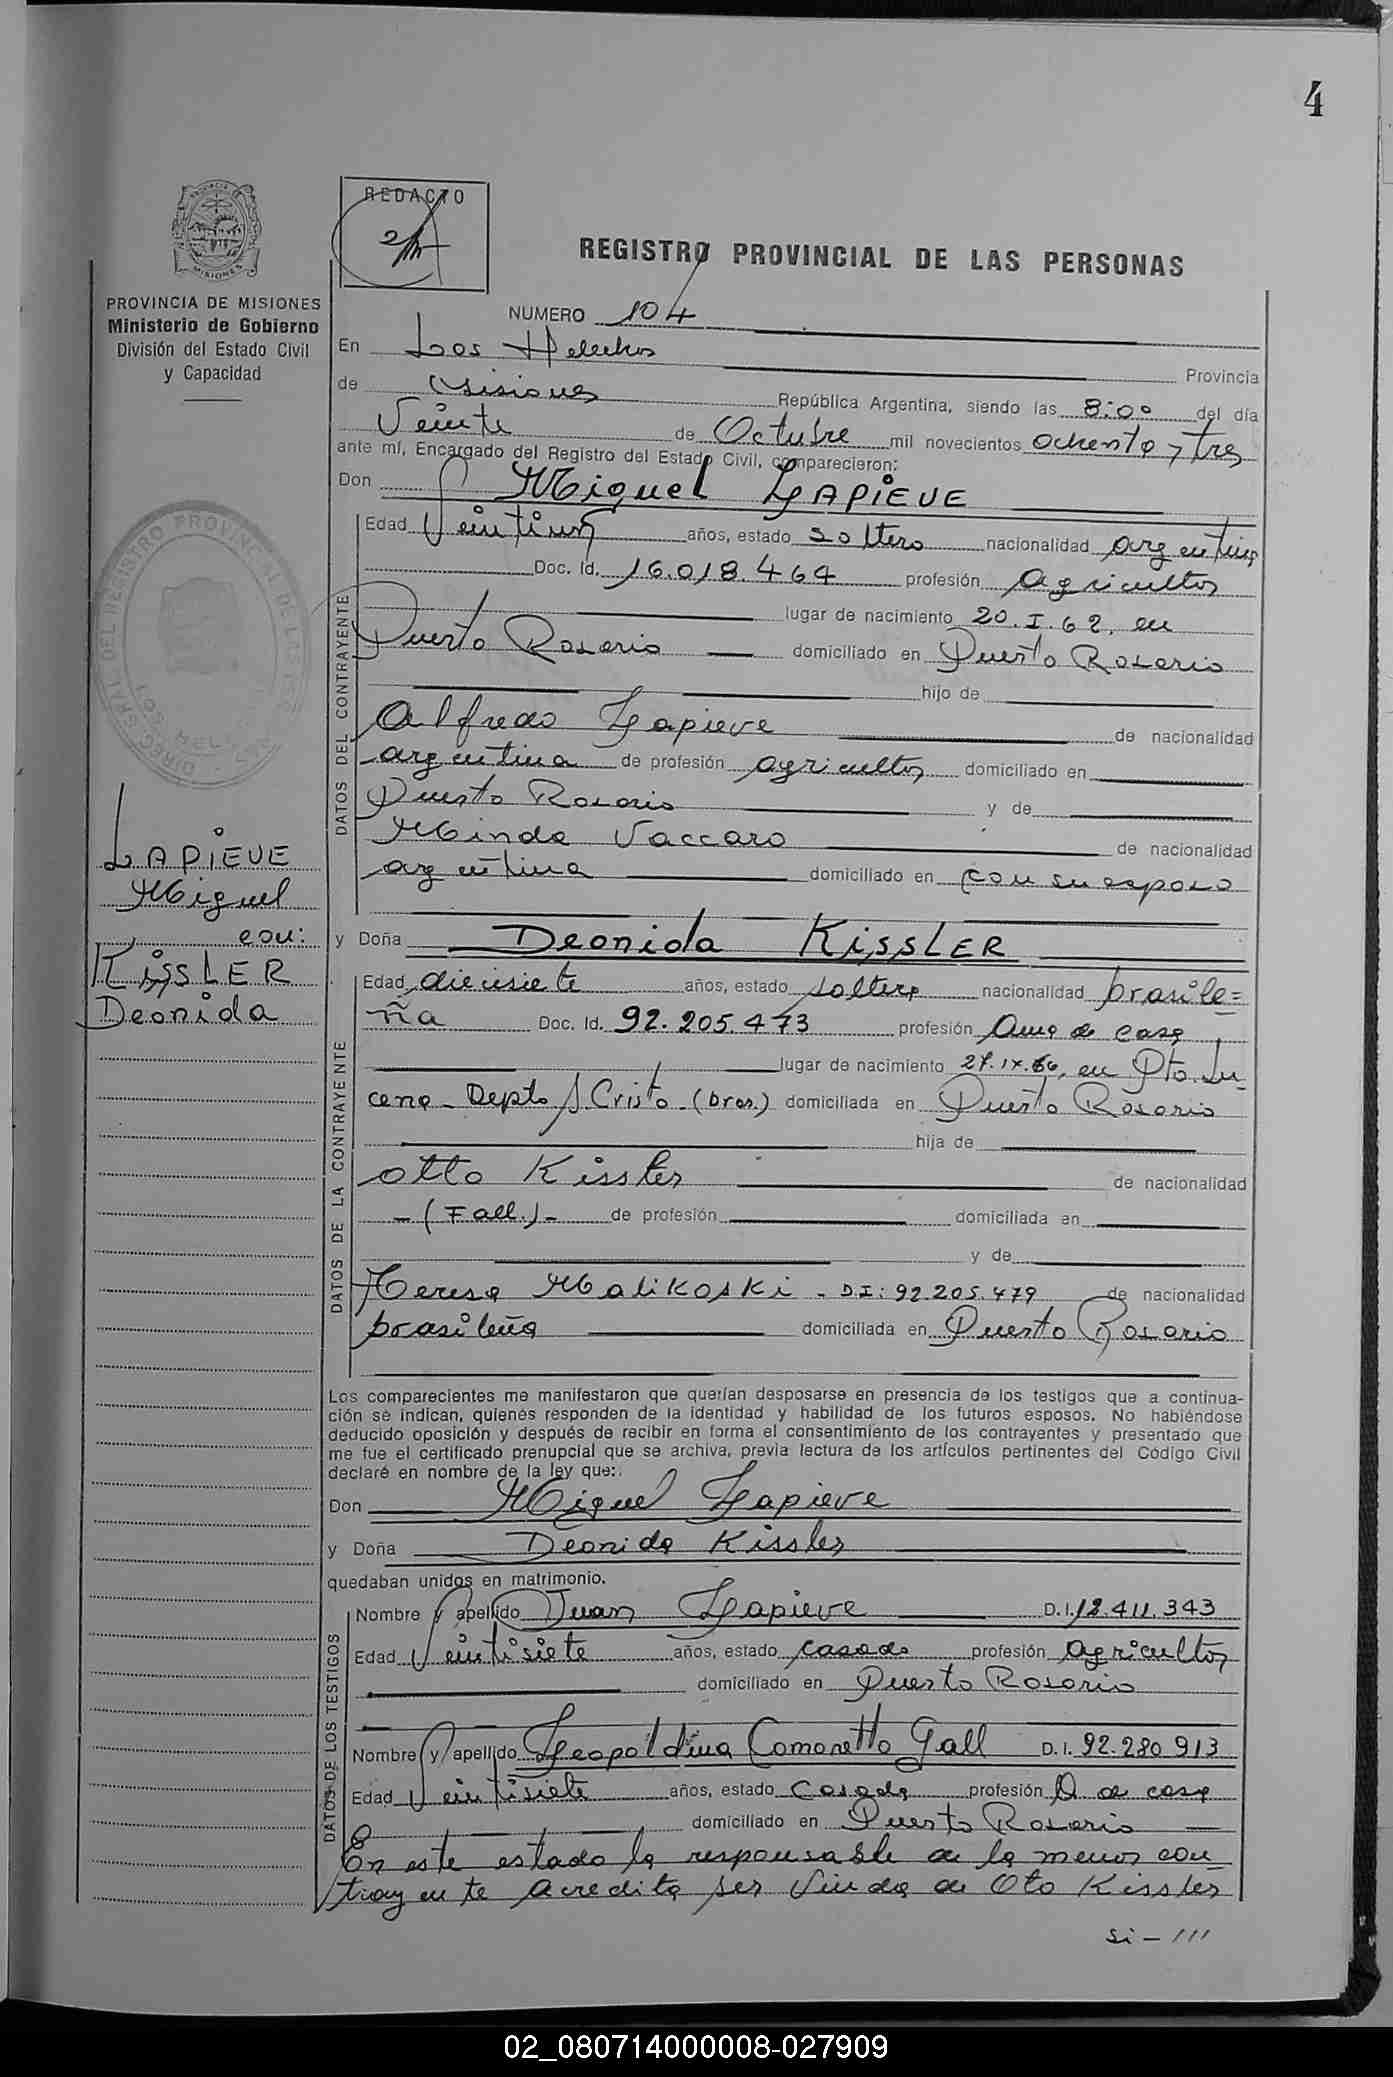 4
REDACTO
REGISTRO PROVINCIAL DE LAS PERSONAS
PROVINCIA DE MISIONES
Ministerio de Gobierno
División del Estado Civil
y Capacidad
NUMERO 104
En Los Helechos Provincia
de Misiones República Argentina, siendo las 8:00 del día
Veinte de Octubre mil novecientos ochenta y tres
ante mí, Encargado del Registro del Estado Civil, comparecieron:
Don Miguel LAPIEVE
DATOS DEL CONTRAYENTE
Edad Veintiun años, estado soltero nacionalidad argentino
Doc. Id. 16.018.464 profesión agricultor
lugar de nacimiento 20.I.62, en
Puerto Rosario domiciliado en Puerto Rosario
hijo de
Alfredo Lapieve de nacionalidad
argentina de profesión agricultor domiciliado en
Puerto Rosario y de
Minda Vaccaro de nacionalidad
argentina domiciliado en con su esposo
LAPIEVE
Miguel
con:
KISSLER
Deonida
y Doña Deonida KISSLER
DATOS DE LA CONTRAYENTE
Edad diecisiete años, estado soltera nacionalidad brasile=
ña Doc. Id. 92.205.473 profesión Ama de casa
lugar de nacimiento 27.IX.66, en Pto. Lu-
cena - Depto S. Cristo - (bras.) domiciliada en Puerto Rosario
hija de
Otto Kissler de nacionalidad
- (Fall.) - de profesión domiciliada en
y de
Teresa Malikoski - DI: 92.205.479 de nacionalidad
brasileña domiciliada en Puerto Rosario
Los comparecientes me manifestaron que querían desposarse en presencia de los testigos que a continua-
ción se indican, quienes responden de la identidad y habilidad de los futuros esposos. No habiéndose
deducido oposición y después de recibir en forma el consentimiento de los contrayentes y presentado que
me fue el certificado prenupcial que se archiva, previa lectura de los artículos pertinentes del Código Civil
declaré en nombre de la ley que:
Don Miguel Lapieve
y Doña Deonida Kissler
quedaban unidos en matrimonio.
DATOS DE LOS TESTIGOS
Nombre y apellido Juan Lapieve D.I. 12.411.343
Edad Veintisiete años, estado casado profesión agricultor
domiciliado en Puerto Rosario
Nombre y apellido Leopoldina Comoretto Gall D.I. 92.280.913
Edad Veintisiete años, estado Casada profesión A de casa
domiciliado en Puerto Rosario
En este estado la responsable de la menor con-
trayente acredita ser Viuda de Oto Kissler
si - ///
02_080714000008-027909